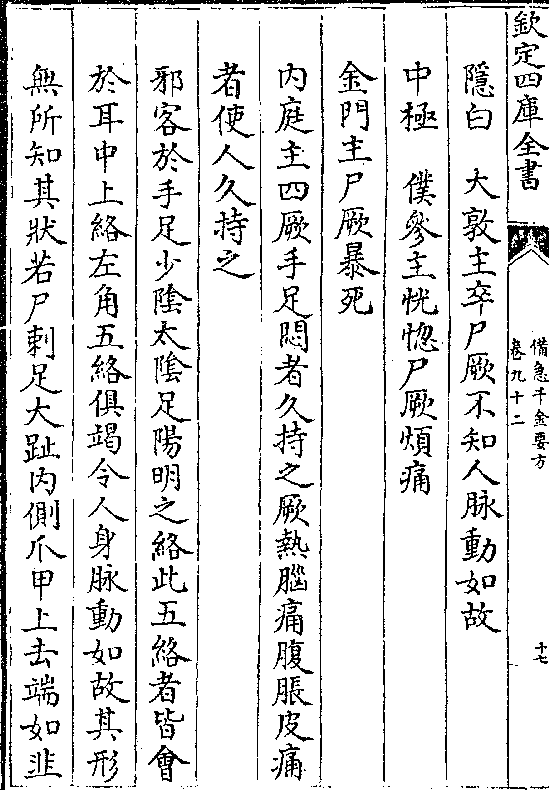 欽定四庫全書
備急千金要方
卷九十二
十七
隱白　大敦主卒尸厥不知人脉動如故
中極　僕參主恍惚尸厥煩痛
金門主尸厥暴死
内庭主四厥手足悶者久持之厥熱腦痛腹脹皮痛
者使人久持之
邪客於手足少陰太陰足陽明之絡此五絡者皆會
於耳中上絡左角五絡俱竭令人身脉動如故其形
無所知其狀若尸刺足大趾内側爪甲上去端如韭